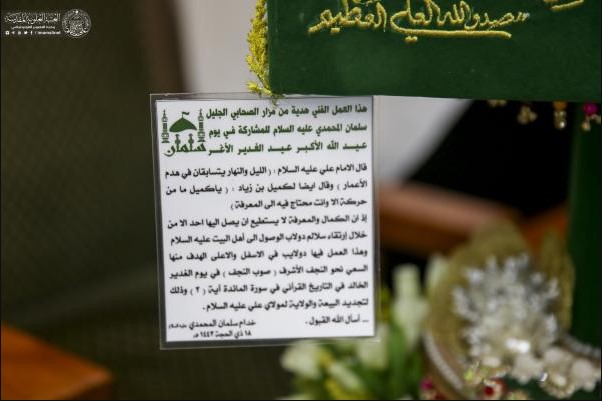 صدق الله العلي العظيم
هذا العمل الفني هدية من مزار الصحابي الجليل
سلمان المحمدي عليه السلام للمشاركة في يوم
عيد الله الأكبر عيد الغدير الأغر
سلمان
قال الامام علي عليه السلام : ( الليل والنهار يتسابقان في هدم
الأعمار ) وقال ايضا لكميل بن زياد : ( ياكميل ما من
حركة الا وانت محتاج فيه الى المعرفة )
إذ ان الكمال والمعرفة لا يستطيع ان يصل اليها احد الا من
خلال إرتقاء سلالم دولاب الوصول الى أهل البيت عليه السلام
وهذا العمل فيها دولايب في الاسفل والاعلى الهدف منها
السعي نحو النجف الأشرف ( صوب النجف ) في يوم الغدير
الخالد في التاريخ القرآني في سورة المائدة آية ( ٣ ) وذلك
لتجديد البيعة والولاية لمولاي علي عليه السلام .
... أسأل الله القبول .
خدام سلمان المحمدي
١٨ ذي الحجة ١٤٤٣ هـ
العتبة العلوية المقدسة
imamali.net